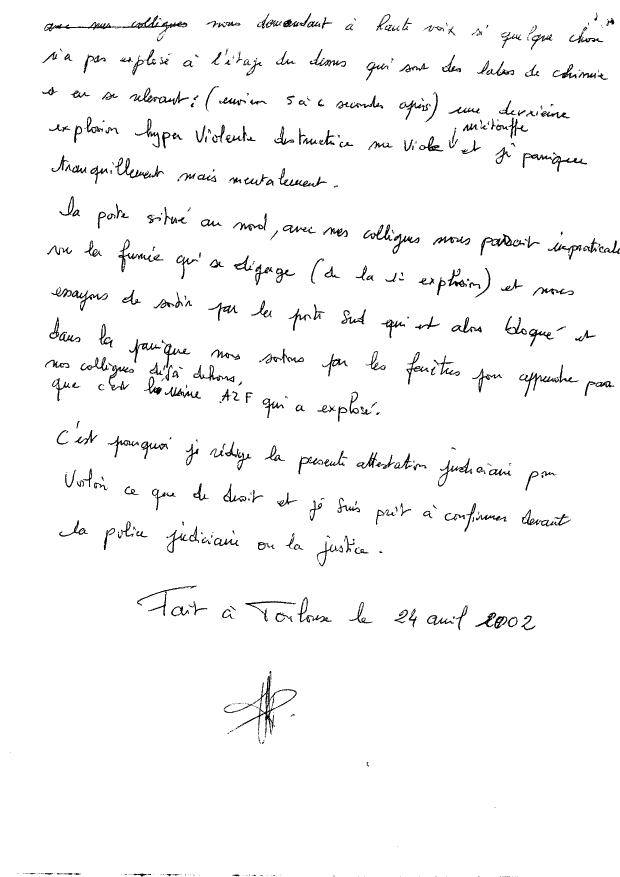 avec mes collègues nous demandant à haute voix si quelque chose
n'a pas explosé à l'étage du dessus qui sont des labos de chimie
et en se relevant : (environ 5 à 6 secondes après) une deuxième
explosion hyper Violente destructrice me Viole m'étouffe et je panique
tranquillement mais mentalement.
La porte situé au nord, avec mes collègues nous paraît impraticable
vu la fumée qui se dégage (de la 1è explosion) et nous
essayons de sortir par la porte Sud qui est alors bloqué et
dans la panique nous sortons par les fenêtres pour apprendre par
nos collègues déjà dehors,
que c'est l'usine AZF qui a explosé.
C'est pourquoi je rédige la présente attestation judiciaire pour
Valoir ce que de droit et je suis prêt à confirmer devant
la police judiciaire ou la justice.
Fait à Toulouse le 24 avril 2002